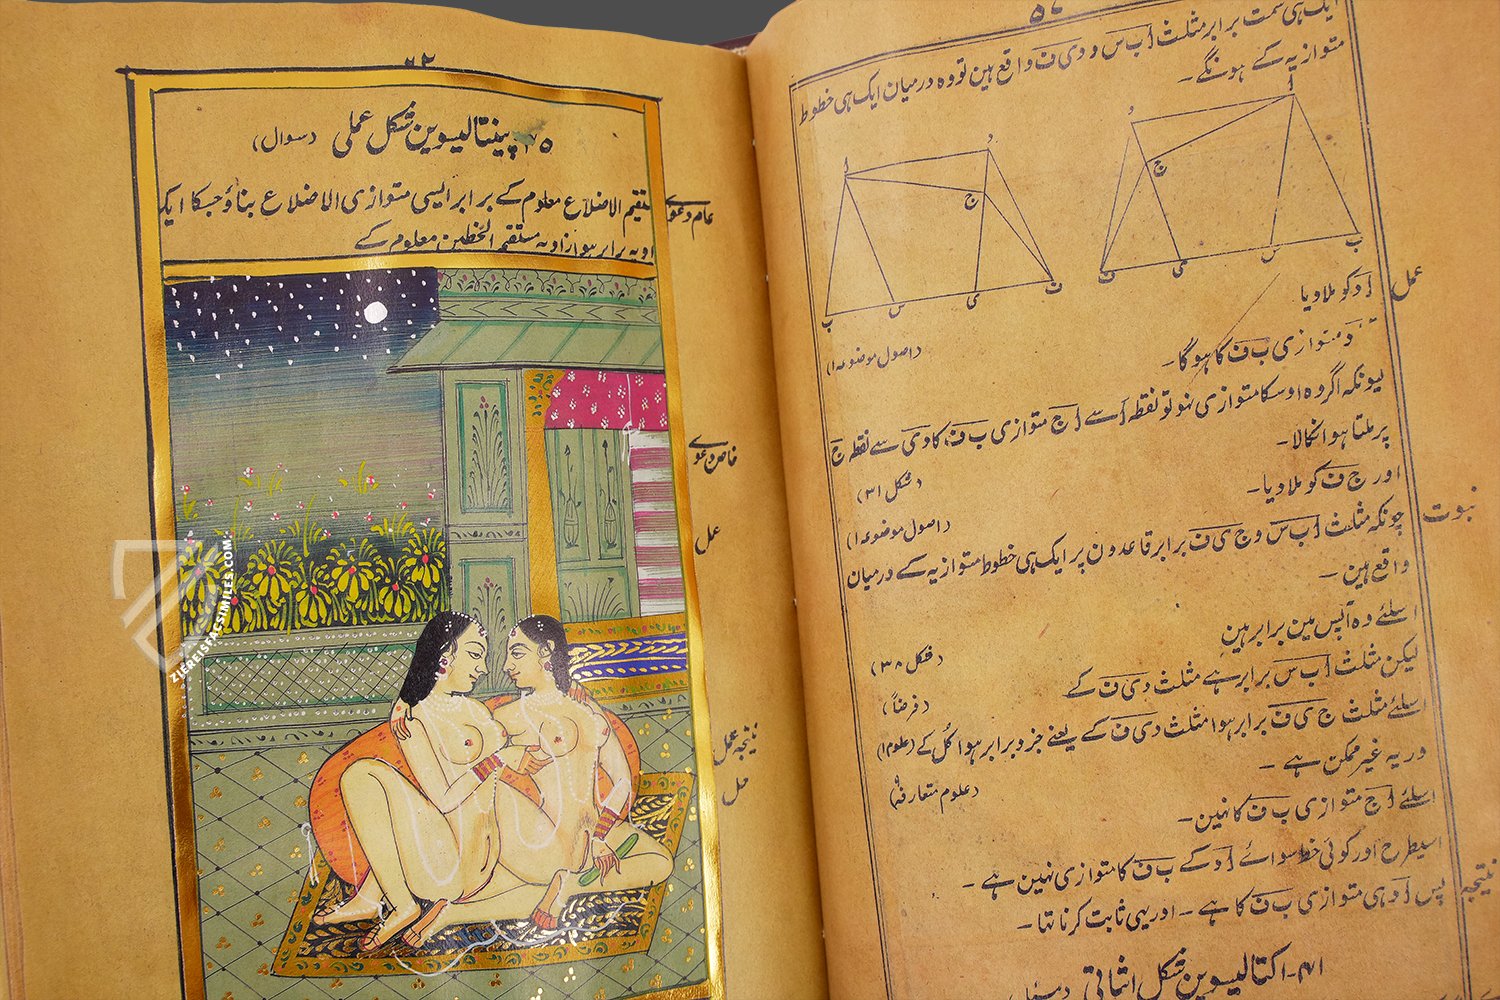 ۴۲
۴۵ پینتالیسوین شکل عملی (سوال)
مستقیم الاضلاع معلوم کے برابر ایسی متوازی الاضلاع بناؤ جسکا ایک
اویہ برابر ہو زاویہ مستقیم الخطین معلوم کے
عام دعوے
خاص دعوے
عمل
نتیجہ عمل
حل
ZIEREISFACSIMILES.COM
ایک ہی سمت برابر مثلث اَب سَ و دی ف واقع ہین تو وہ درمیان ایک ہی خطوط
متوازیہ کے ہونگے۔
ا د ج ب س ی ف
د ا ج ف ی س ب
عمل
اَد کو ملا دیا
(اصول موضوعہ ۱)
اَد متوازی ب ف کا ہوگا۔
کیونکہ اگر وہ اوسکا متوازی نہو تو نقطہ اَ سے اَج متوازی ب ف کا دی سے نقطہ ج
پر ملتا ہوا نکالا۔
(شکل ۳۱)
اور ج ف کو ملا دیا۔
(اصول موضوعہ ۱)
ثبوت
چونکہ مثلث اَب س و ج ی ف برابر قاعدون پر ایک ہی خطوط متوازیہ کے درمیان
واقع ہین۔
اسلئے وہ آپس مین برابر ہین
(شکل ۳۸)
لیکن مثلث اَب س برابر ہے مثلث دی ف کے
(فرضاً)
اسلئے مثلث ج ی ف برابر ہوا مثلث دی ف کے یعنے جزو برابر ہوا کل کے (علوم ۱)
اور یہ غیر ممکن ہے۔
(علوم متعارفہ ۹)
اسلئے اَج متوازی ب ف کا نہین۔
اسیطرح اور کوئی خط سوائے اَد کے ب ف کا متوازی نہین ہے۔
نتیجہ
پس اَد ہی متوازی ب ف کا ہے۔ اور یہی ثابت کرنا تھا۔
۴۱۔ اکتالیسوین شکل اثباتی (مسئلہ